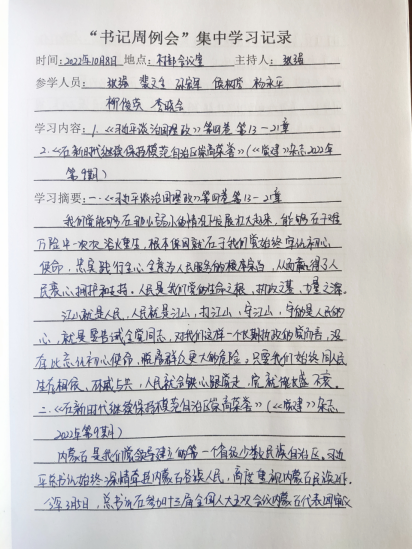 “书记周例会”集中学习记录
时间：2022年10月8日 地点：村部会议室 主持人：
参学人员：
学习内容：1.《习近平谈治国理政》第四卷 第13－21章
2.《在新时代继续保持模范自治区崇高荣誉》(《党建》杂志2022年
第9期)
学习摘要：一.《习近平谈治国理政》第四卷第13－21章
我们党能够在那么弱小的情况下发展壮大起来，能够在千难
万险中一次次浴火重生，根本原因就在于我们党始终守住初心
使命，忠实践行全心全意为人民服务的根本宗旨，从而赢得了人
民衷心拥护和支持。人民是我们党的生命之根、执政之基、力量之源。
江山就是人民，人民就是江山，打江山、守江山，守的是人民的
心，就是要告诫全党同志，对我们这样一个长期执政的党而言，没
有比忘记初心使命、脱离群众更大的危险。只要我们始终同人民
生死相依、休戚与共，人民就会铁心跟党走，党就能长盛不衰。
二.《在新时代继续保持模范自治区崇高荣誉》(《党建》杂志
2022年第9期)
内蒙古是我们党领导建立的第一个省级少数民族自治区。习近
平总书记始终深情牵挂内蒙古各族人民，高度重视内蒙古民族工作。
今年3月5日，总书记在参加十三届全国人大五次会议内蒙古代表团审议